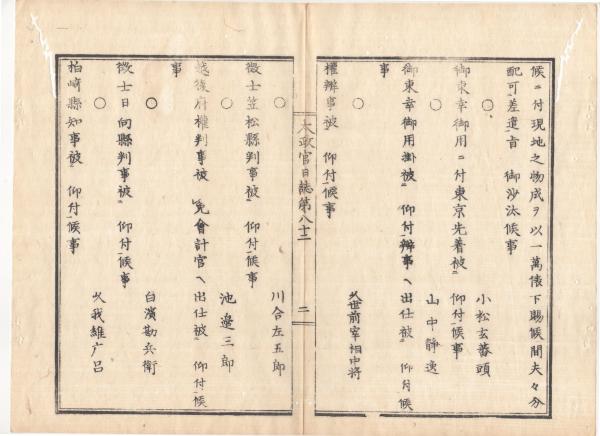 候ニ付現地之物成ヲ以一萬俵下賜候間夫々分
配可差遣旨　御沙汰候事
○　小松玄蕃頭
御東幸御用ニ付東京先着被　仰付候事
○　山中靜逸
御東幸御用掛被　仰付辨事ヘ出仕被　仰付候
事
久世前宰相中將
權辨事被　仰付候事
太政官日誌第八十二
二
○　川合左五郎
徵士笠松縣判事被　仰付候事
○　池邉三郎
越後府權判事被　免會計官ヘ出仕被　仰付候
事
○　白濱勘兵衛
徵士日向縣判事被　仰付候事
○　久我維广呂
柏崎縣知事被　仰付候事